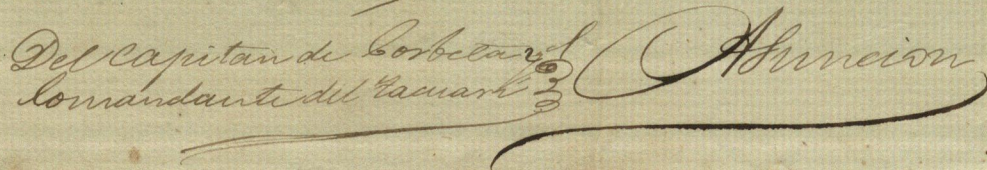 Del Capitan de Corbeta y
Comandante del Tacuari
Asuncion